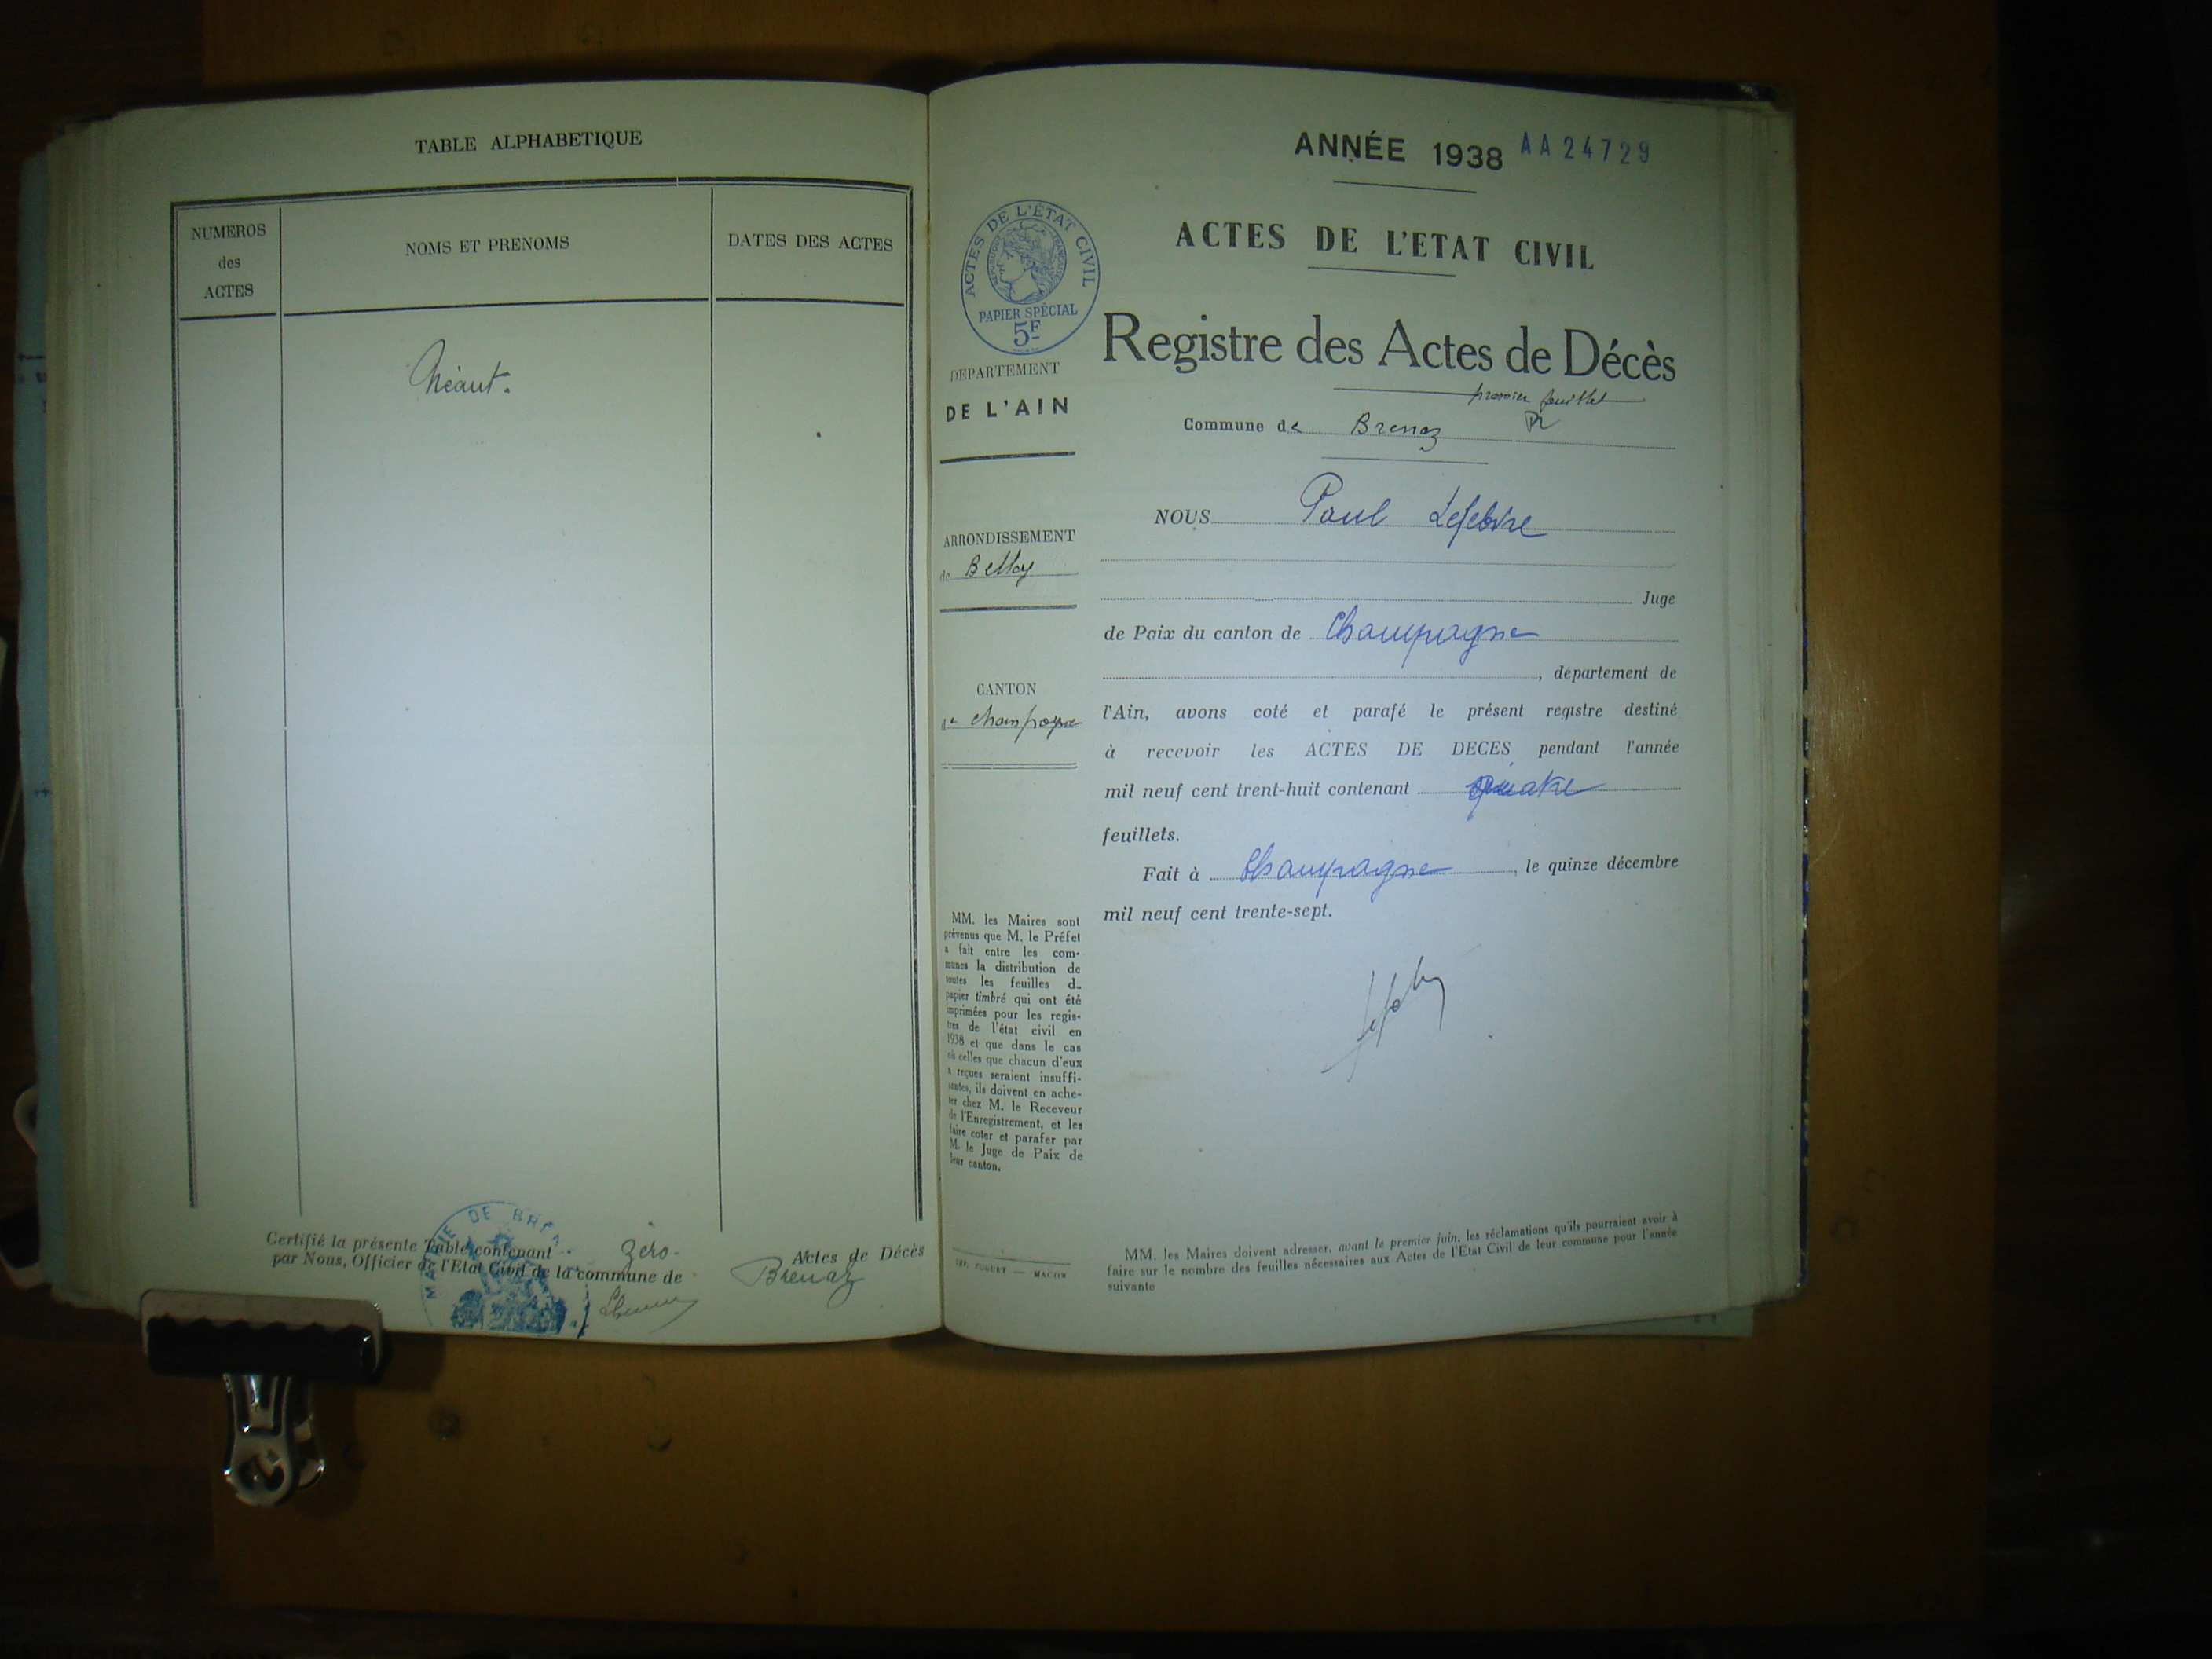 TABLE ALPHABETIQUE
NUMEROS
des
ACTES
NOMS ET PRENOMS
DATES DES ACTES
Néant.
Certifié la présente Table contenant zéro Actes de Décès
par Nous, Officier de l'Etat Civil de la commune de Brenaz
MAIRIE DE BRE
ANNÉE 1938 AA24729
ACTES DE L'ETAT CIVIL
ACTES DE L'ÉTAT CIVIL
RÉPUBLIQUE FRANÇAISE
PAPIER SPÉCIAL
5F
Registre des Actes de Décès
premier feuillet
DEPARTEMENT
DE L'AIN
Commune de Brenaz
NOUS Paul Lefebvre
ARRONDISSEMENT
de Belley
Juge
de Paix du canton de Champagne
, département de
CANTON
de Champagne
l'Ain, avons coté et parafé le présent registre destiné
à recevoir les ACTES DE DECES pendant l'année
mil neuf cent trent-huit contenant quatre
feuillets.
Fait à Champagne, le quinze décembre
mil neuf cent trente-sept.
MM. les Maires sont
prévenus que M. le Préfet
a fait entre les com-
munes la distribution de
toutes les feuilles d
papier timbré qui ont été
imprimées pour les regis-
tres de l'état civil en
1938 et que dans le cas
où celles que chacun d'eux
a reçues seraient insuffi-
santes, ils doivent en ache-
ter chez M. le Receveur
de l'Enregistrement, et les
faire coter et parafer par
M. le Juge de Paix de
leur canton.
MACON
MM. les Maires doivent adresser, avant le premier juin, les réclamations qu'ils pourraient avoir à
faire sur le nombre des feuilles nécessaires aux Actes de l'Etat Civil de leur commune pour l'année
suivante